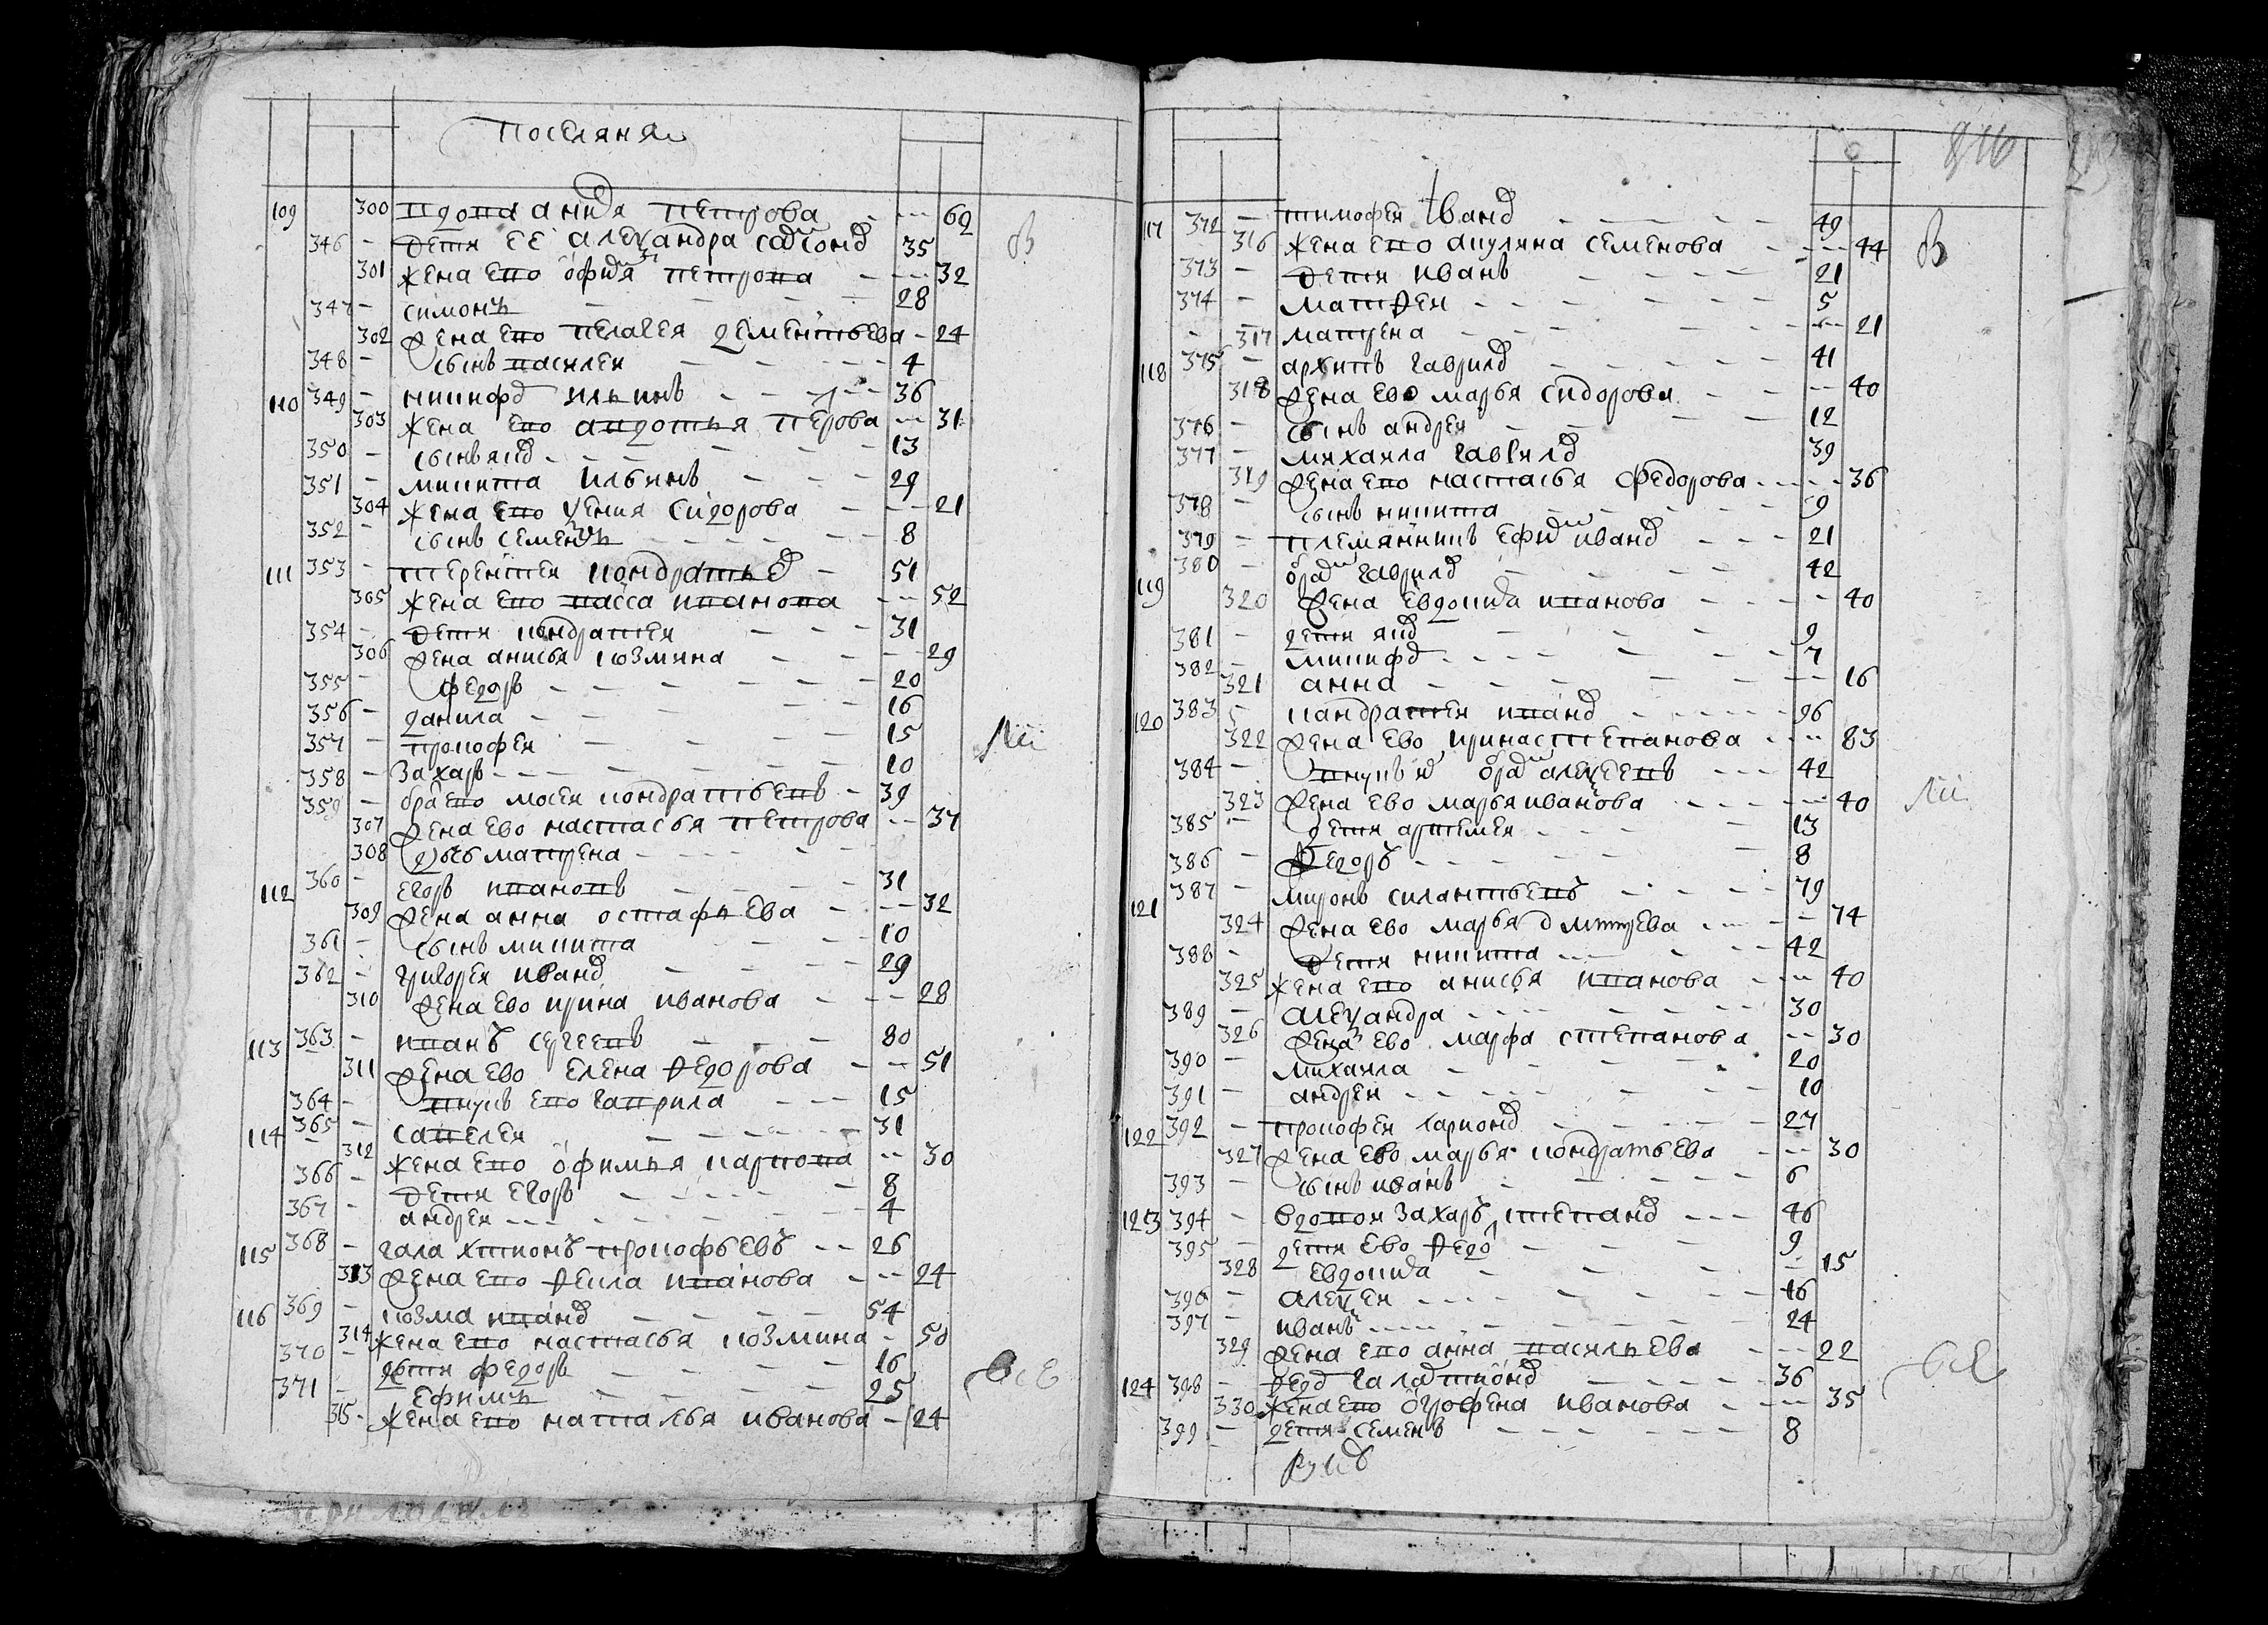 поселяня
109 300 вдова аниѧ петрова 62
346 дети ее александра садіонд 35
301 жена ево офимя петрова 32
347 симонъ 28
302 жена ево пелагея дементьева 24
348 сынъ василеи 4
110 349 никифд ильинъ 36
303 жена ево авдотья перова 31
350 сынъ якд 13
351 микита ильинъ 29
304 жена ево ксения сидорова 21
352 сынъ семенъ 8
111 353 терентеи кондратьд 51
305 жена ево васса иванова 52
354 дети кондратеи 31
306 жена анисья козмина 29
355 федоръ 20
356 данила 16
357 прокофеи 15
358 захаръ 10
359 бра ево мосеи кондратьевъ 39
307 жена ево настасья петрова 37
308 дочь матрена
112 360 егоръ ивановъ 31
309 жена анна остафьева 32
361 сынъ микита 10
362 григореи иванд 29
310 жена ево ирина иванова 28
113 363 иванъ сергеевъ 80
311 жена ево елена федорова 51
364 внукъ ево гаврила 15
114 365 савелеи 31
312 жена ево офимья карпова 30
366 дети егоръ 8
367 андреи 4
115 368 гала хтионъ прокофьевъ 26
313 жена ево фекла иванова 24
116 369 козма иванд 54
314 жена ево настасья козмина 50
370 дети федоръ 16
371 ефимъ 25
315 жена ево наталья иванова 24
все
816
117 372 тимофеи иванд 49
316 жена ево акулина семенова 44
373 дети иванъ 21
374 матфеи 5
317 матрена 21
118 375 архипъ гаврилд 41
318 жена ево марья сидорова 40
376 сынъ андреи 12
377 михаила гаврилд 39
319 жена ево настасья федорова 36
378 сынъ никита 9
379 племянникъ ефим иванд 21
119 380 брат гаврилд 42
320 жена евдокиѧ иванова 40
381 дети якд 9
382 микифд 7
321 анна 16
120 383 кандратеи иванд 96
322 жена ево ирина степанова 83
384 внукъ и брат алексеевъ 42
323 жена ево марья иванова 40
385 дети артемеи 13
386 федоръ 8
121 387 миронъ силантьевъ 79
324 жена ево марья дмитрева 74
388 дети никита 42
325 жена ево анисья иванова 40
389 александра 30
326 жена ево марфа степанова 30
390 михаила 20
391 андреи 10
122 392 прокофеи ларионд 27
327 жена ево марья кондратьева 30
393 сынъ иванъ 6
123 394 вдовои захаръ степанд 46
395 дети ево федо 9
328 евдокиѧ 15
396 алексеи 16
397 иванъ 24
329 жена ево анна васильева 22
124 398 федд галактионд 36
330 жена ево огрофена иванова 35
399 дети семенъ 8
все